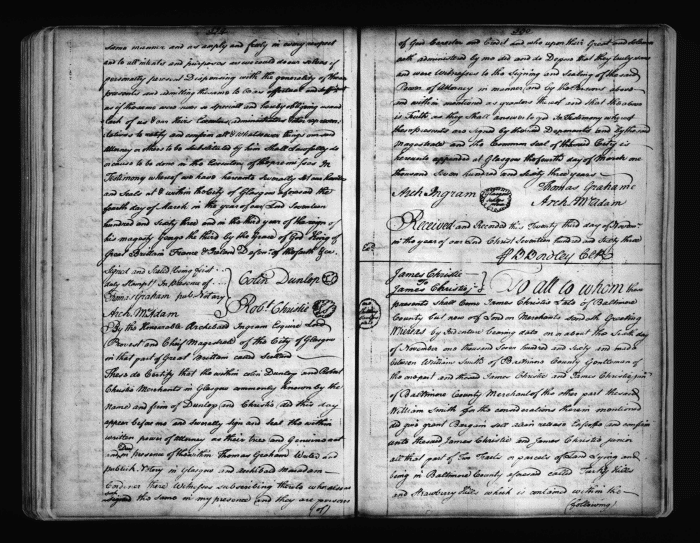 same manner and as amply and freely in every respect
and to all intents and purposes as we could do our selves if
personally present Dispensing with the generality of these
presents and admitting the same to be as effectual and
as if there were as special and
of us & our Heirs Executors Administrators
to ratify and confirm all & whatsoever things our said
Attorney or others to be substituted by him shall Lawfully do
or cause to be done in the Execution of the premises In
Testimony whereof we have hereunto severally set our hands
and Seals at & within the City of Glasgow aforesaid the
fourth day of March in the year of our Lord Seventeen
hundred and Sixty three and in the third year of the reign of
his majesty George the third by the Grace of God King of
Great Brittain France & Ireland Defender of the faith &c
Signed and Sealed being first
duly Stamp'd In presence of
Thomas Graham pub: Notary
Arch. McAdam
Colin Dunlop
Robt Christie
By the Honorable Archibald Ingram Esquire Lord
Provost and Chief Magistrate of the City of Glasgow
in that part of Great Brittain called Scotland
These do Certify that the within Colin Dunlop and Robert
Christie Merchants in Glasgow commonly known by the
name and firm of Dunlop and Christie did this day
appear before me and severally sign and seal the within
written power of attorney as their true and Genuine act
and Deed in presence of the within Thomas Graham Writer and
publick Notary in Glasgow and Archibald Macadam
there Witnesses subscribing thereto who also
signed the same in my presence and they are persons
(of)
of Good Character and Credit and who upon their Great and Solemn
oath administered by me did and do Depose that they truly saw
and were Witnesses to the Signing and Sealing of the said
Power of Attorney in manner and by the Persons above
and within mentioned as granters thereof and that the above
is Truth as they shall answer to God In Testimony whereof
these presents are signed by the said Deponents and by the said
Magistrate and the Common Seal of the said City is
hereunto appended at Glasgow the fourth day of March one
thousand Seven hundred and sixty three years
Arch Ingram
Thomas Grahame
Arch McAdam
Received and Recorded this Twenty third day of Novem
in the year of our Lord Christ Seventeen hundred and Sixty three
B Bordley Clk
James Christie
To
James Christie jr
To all to whom these
presents shall come James Christie Late of Baltimore
County but now of London Merchant sendeth Greeting
Whereas by Indenture bearing date on or about the Sixth day
of November one thousand Seven hundred and Sixty and made
between William Smith of Baltimore County Gentleman of
the one part and the said James Christie and James Christie jun
of Baltimore County Merchant of the other part the said
William Smith for the considerations therein mentioned
did give grant Bargain sell alien release Enfeoff and confirm
unto the said James Christie and James Christie junior
all that part of Two Tracts or parcels of Land Lying and
being in Baltimore County aforesaid called Turky Hills
and Strawberry Hills which is contained within the
(following)